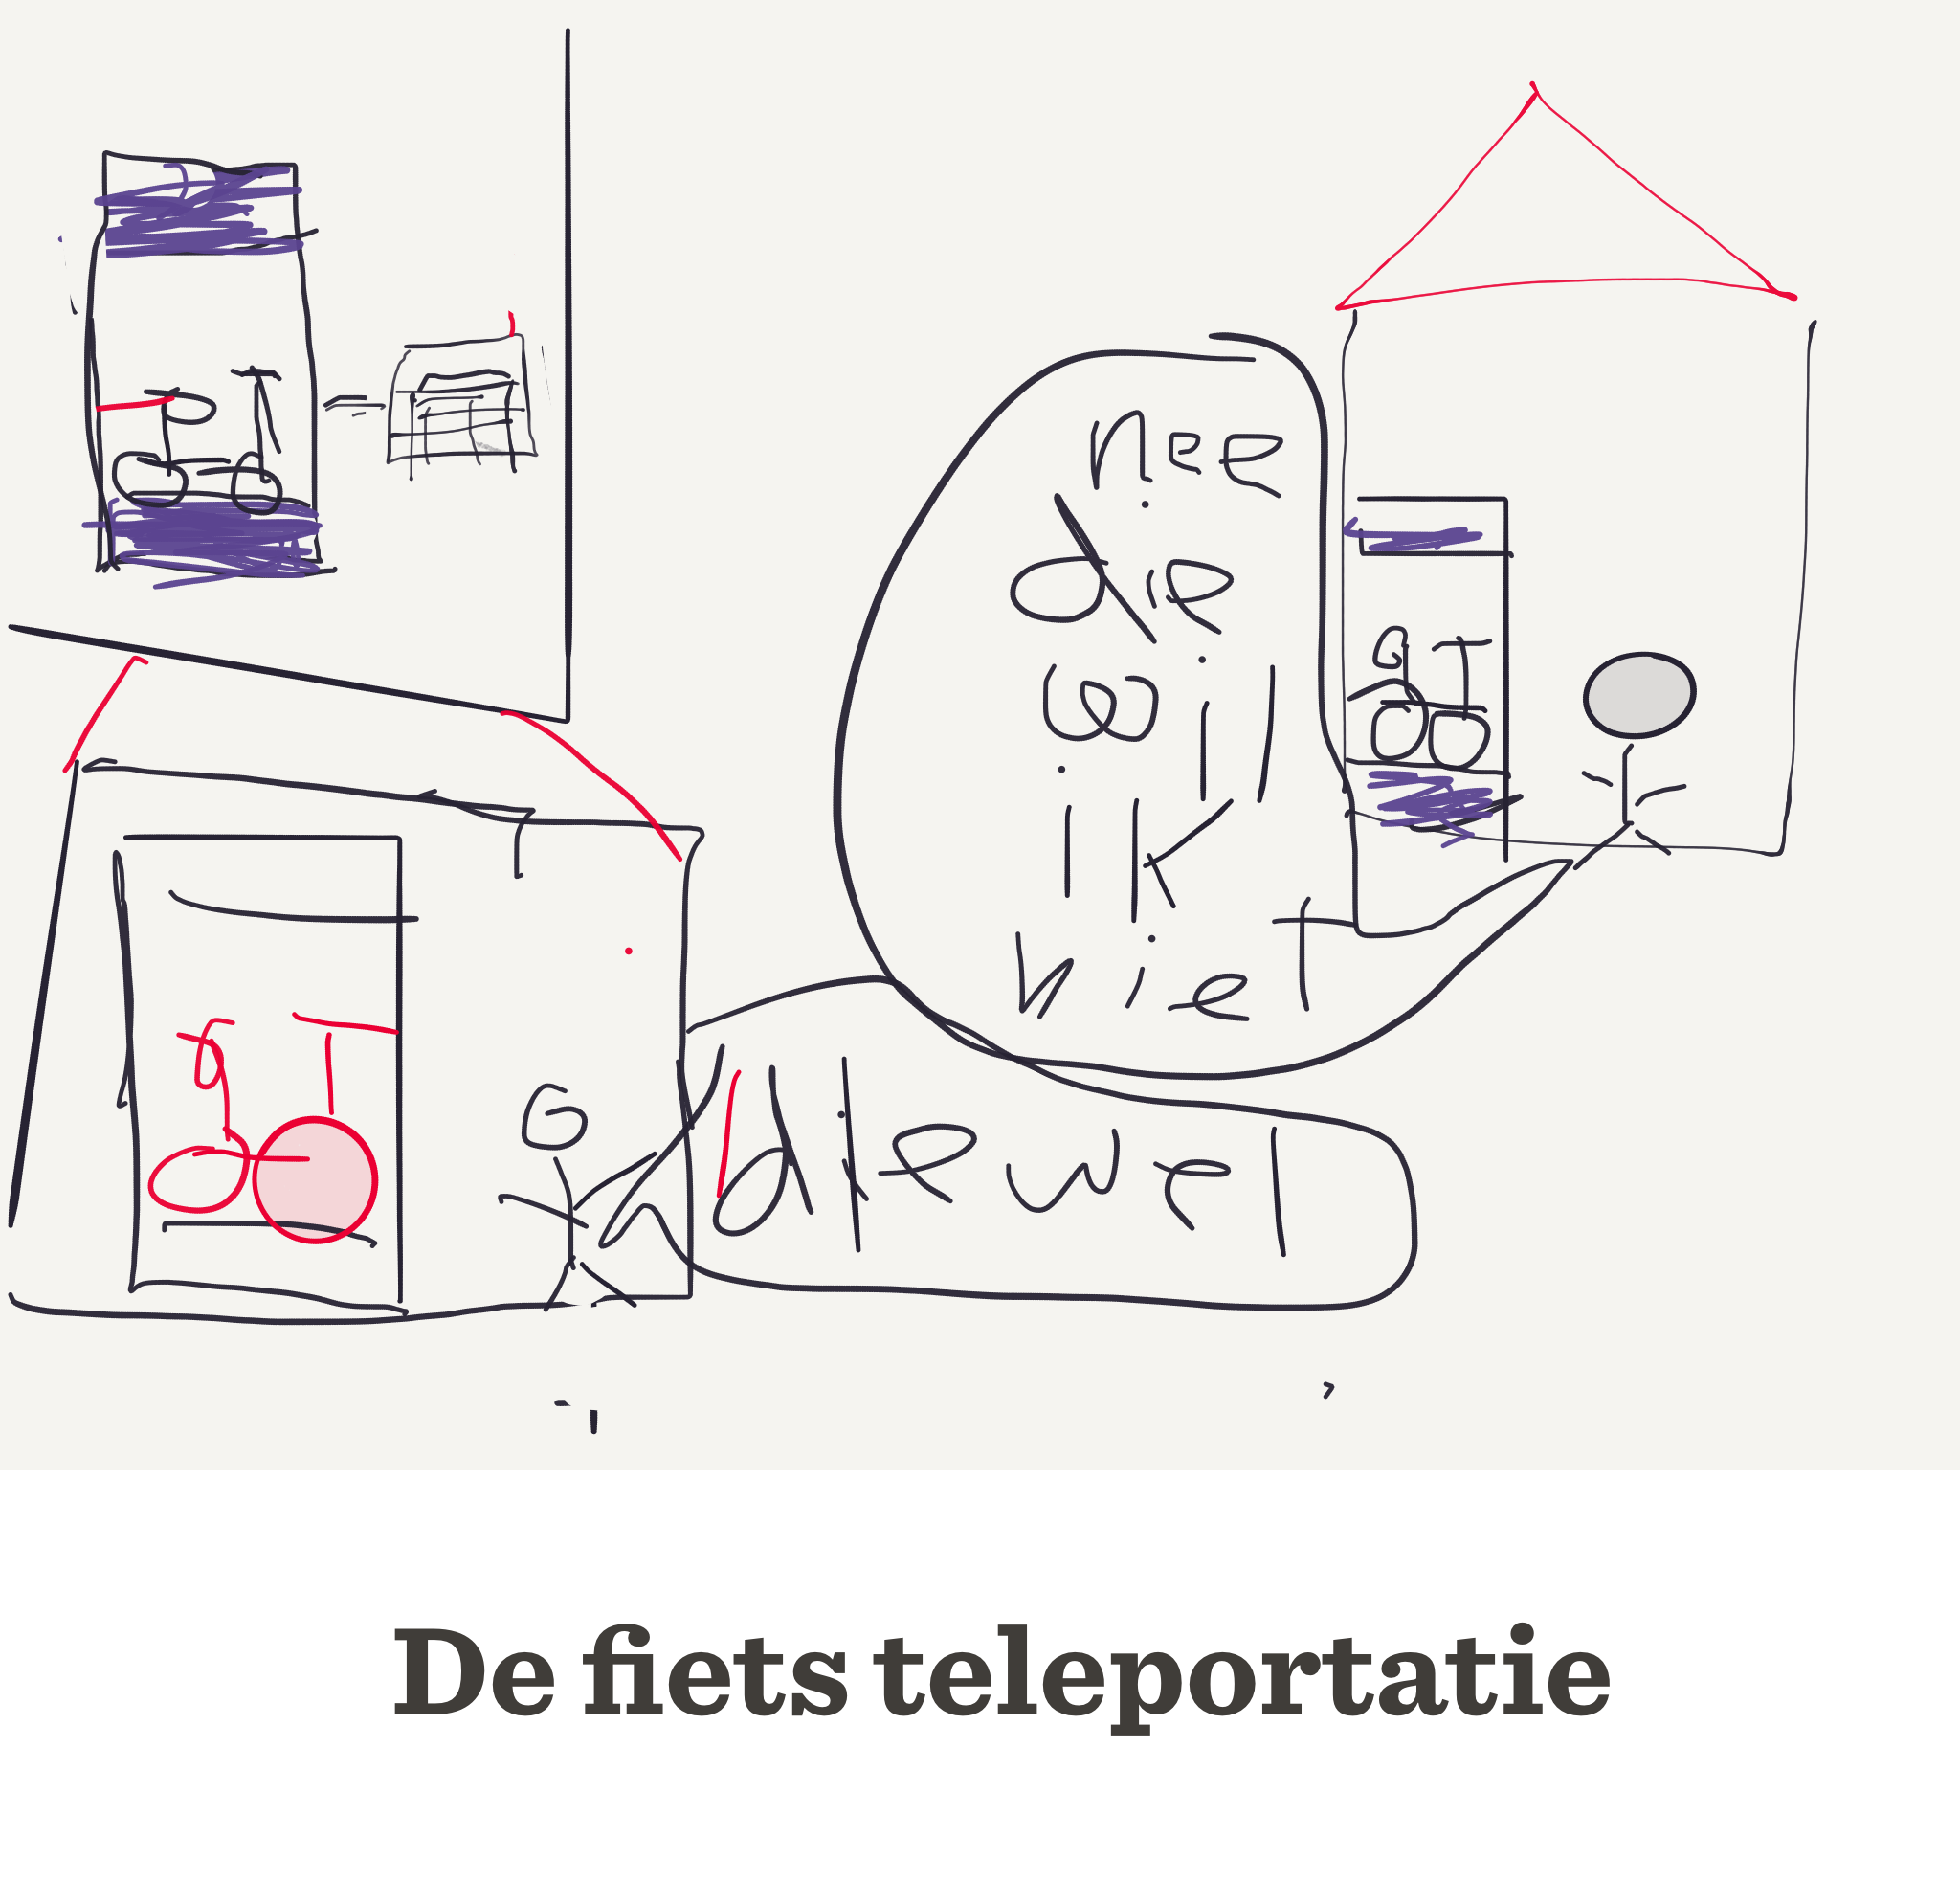 nee
die
wil
ik
niet
die wel
De fiets teleportatie